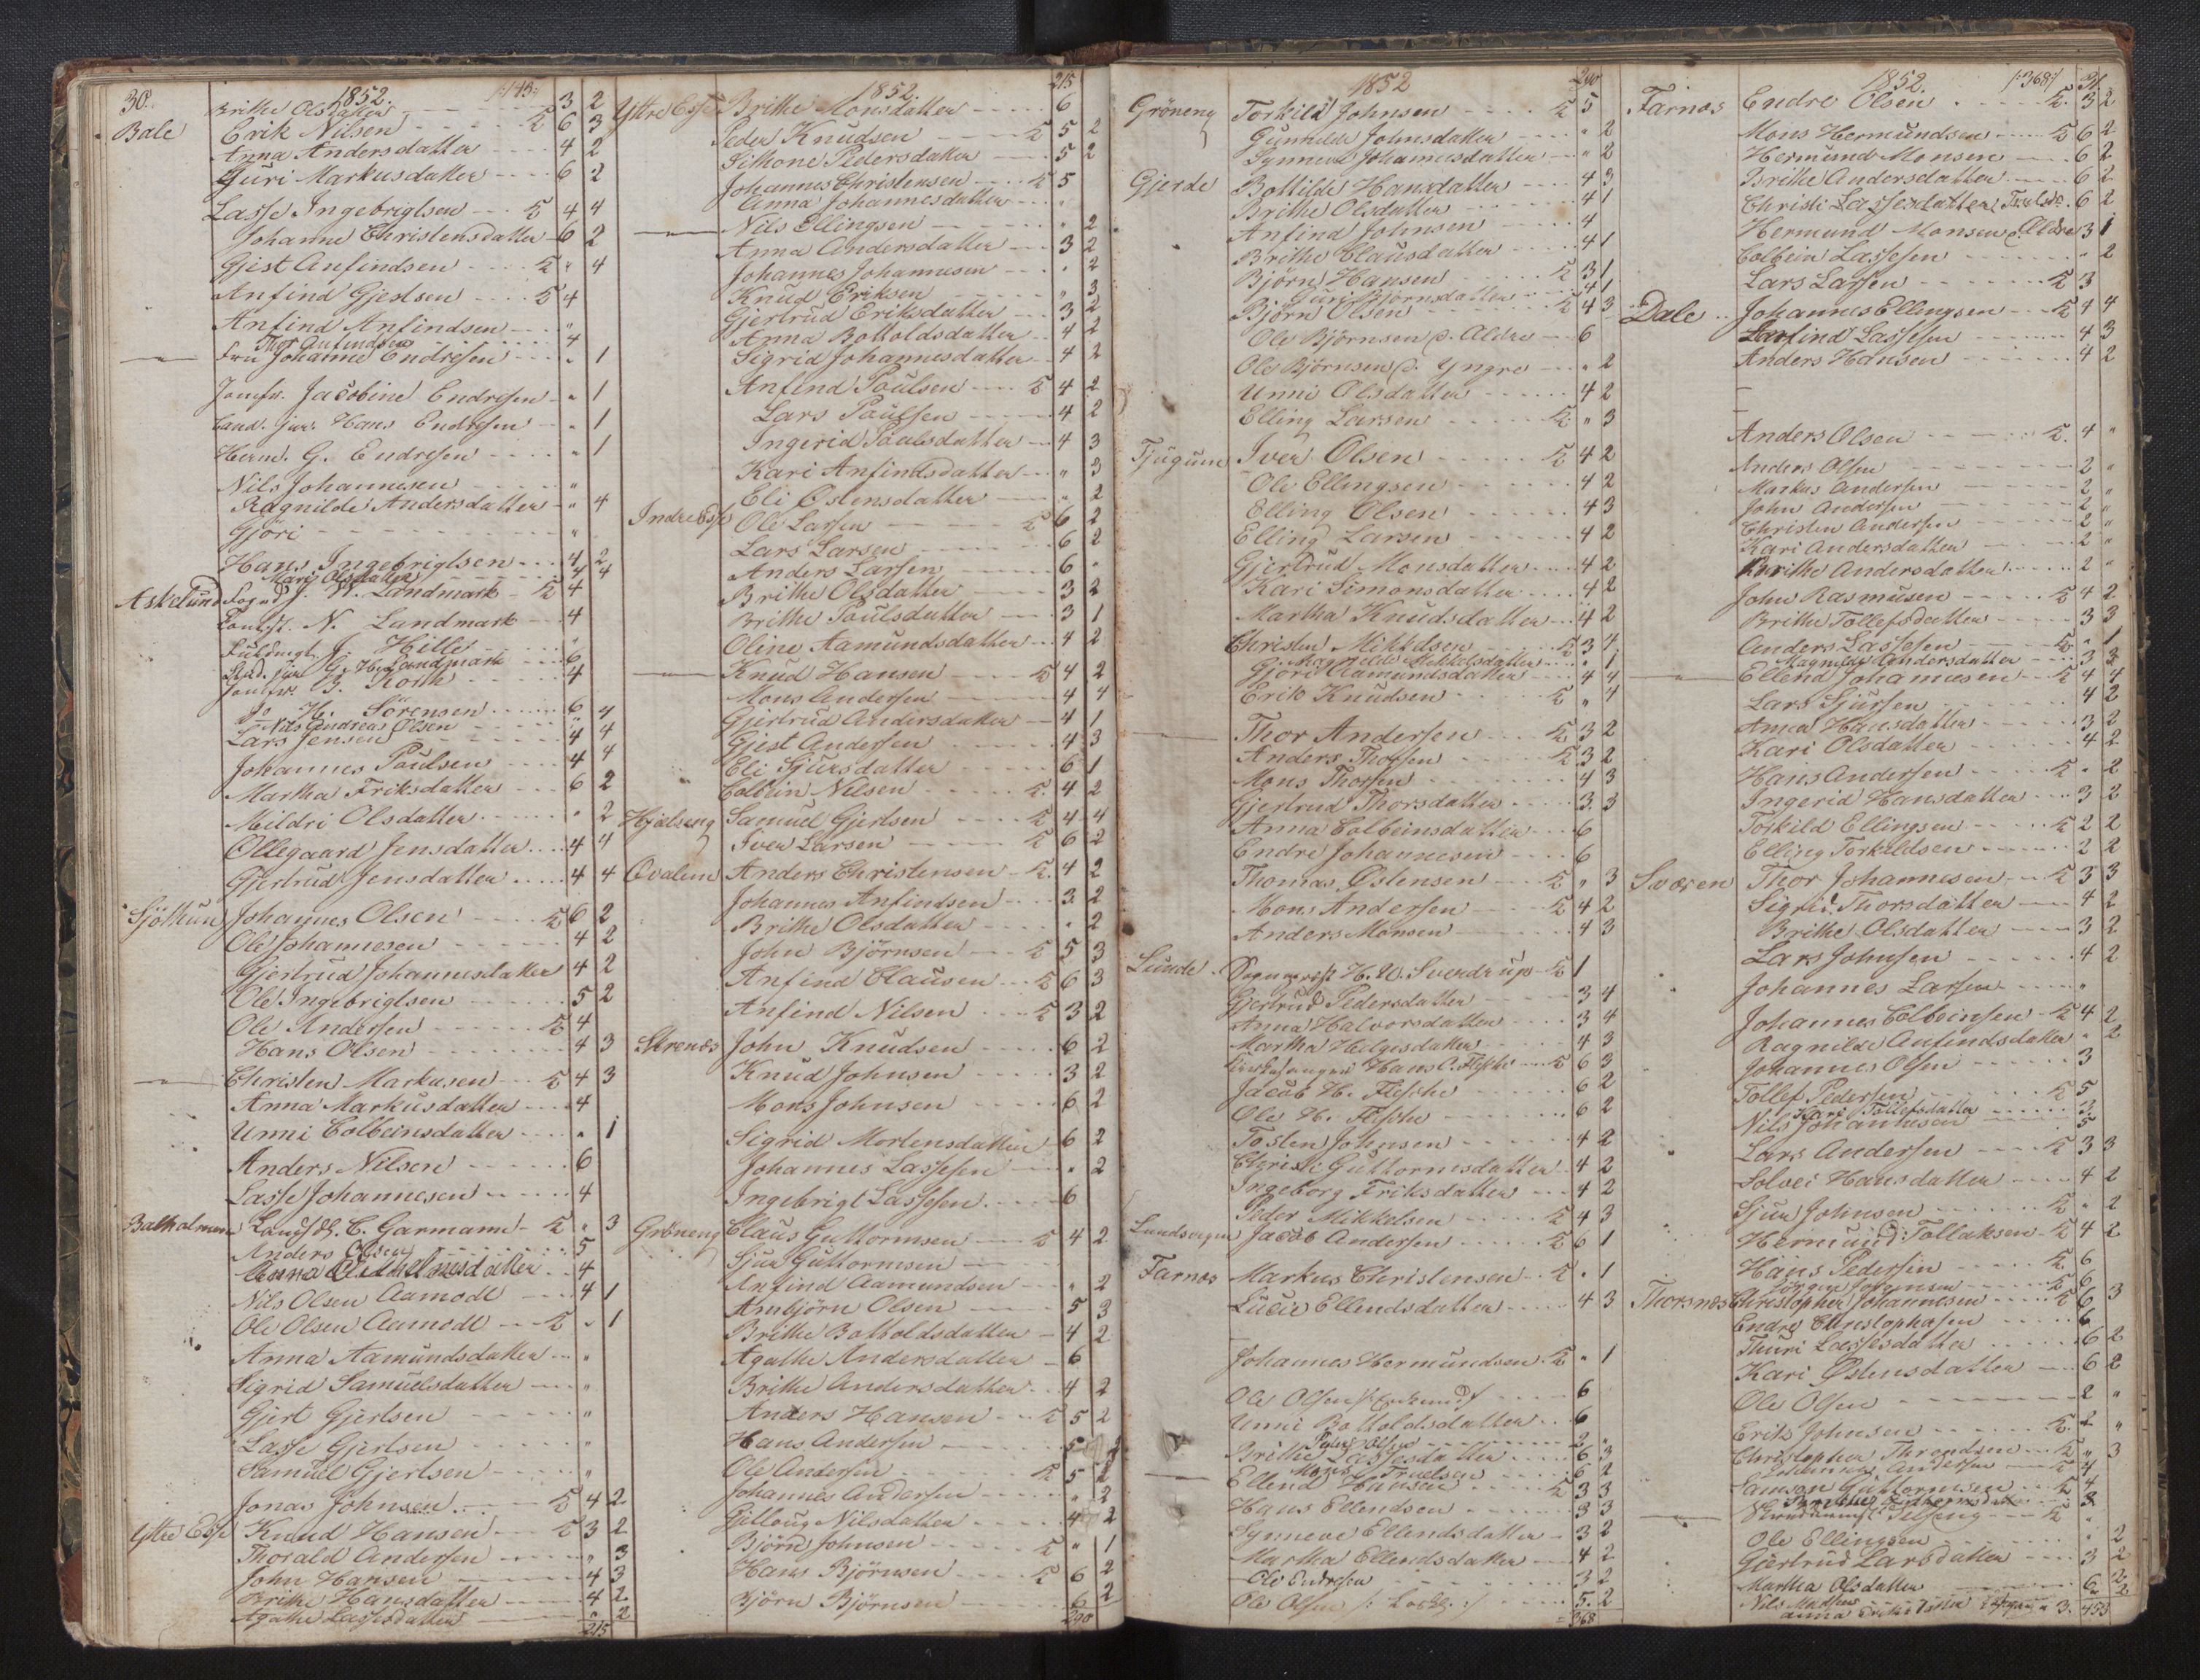 30. 1852. 1:143:
Brithe Olsdatter 3 2
Bale Erik Nilsen 6 3
Anna Andersdatter 4 2
Guri Markusdatter 6 2
Lasse Ingebrigtsen 4 4
Johanne Christensdatter 6 2
Gjest Anfindsen " 4
Anfind Gjestsen 4
Anfind Anfindsen "
Thor Anfindsen 4
Fru Johanne Endresen " 1
Jomfr. Jacobine Endresen " 1
Cand. jur. Hans Endresen " 1
Herm. G. Endresen " 1
Nils Johannesen "
Ragnilde Andersdatter " 4
Gjöri "
Hans Ingebrigtsen 4 2
Mari Olsdatter 4 4
Askelund Foged J. N. Landmark 4
N. Landmark 4
J. Hille "
Stud. jur G. H. Landmark 6
Jomfr. B. Korn 4
Do H. Sörensen 6 4
Nils Andreas Olsen "
Lars Jensen 4 4
Johannes Poulsen 4 4
Martha Eriksdatter 6 2
Mildri Olsdatter " 2
Ollegaard Jensdatter 4 4
Gjertrud Jensdatter 4 4
Sjöthun Johannes Olsen 6 2
Ole Johannesen 4 2
Gjertrud Johannesdatter 4 2
Ole Ingebrigtsen 5 2
Ole Andersen 4
Hans Olsen 4 3
Christen Markusen 4 3
Anna Markusdatter 4
Unni Colbeinsdatter " 1
Anders Nilsen 6
Lasse Johannesen 4
Balholmen C. Garmann " 3
Anders Olsen 5
Anna 4
Nils Olsen Aamodt 4 1
Ole Olsen Aamodt " 1
Anna Aamundsdatter "
Sigrid Samuelsdatter "
Gjert Gjertsen "
Lasse Gjertsen "
Samuel Gjertsen "
Jonas Johnsen 4 2
Ytre Esse Knud Hansen 3 2
Thorald Andersen " 3
John Hansen 4 3
Brithe Hansdatter 4 2
Agathe Lassesdatter " 2
215
1852. 215
Ytre Esse Brithe Monsdatter 6
Peder Knudsen 5 2
Simone Pedersdatter 5 2
Johannes Christensen 5
Anna Johannesdatter "
Nils Ellingsen " 2
Anna Andersdatter 3 2
Johannes Johannesen " 2
Knud Eriksen " 3
Gjertrud Eriksdatter 3 2
Anna Bottolsdatter 4 2
Sigrid Johannesdatter 4 2
Anfind Poulsen 4 2
Lars Poulsen 4 2
Ingerid Poulsdatter 4 3
Kari Anfindsdatter " 3
Eli Østensdatter " 2
Indre Esse Ole Larsen 6 2
Lars Larsen 6 2
Anders Larsen 6 "
Brithe Olsdatter 3 2
Brithe Poulsdatter 3 1
Oline Aamundsdatter 4 2
Knud Hansen 4 2
Mons Andersen 4 4
Gjertrud Andersdatter 4 1
Gjest Andersen 4 3
Eli Sjursdatter 6 1
Colbein Nilsen 4 2
Hjelseng Samuel Gjertsen 4 4
Iver Larsen 6 2
Qvalem Anders Christensen 4 2
Johannes Anfindsen 3 2
Brithe Olsdatter " 2
John Björnsen 5 3
Anfind Clausen 6 3
Anfind Nilsen 3 2
John Knudsen 6 2
Knud Johnsen 3 2
Mons Johnsen 6 2
Sigrid Mortensdatter 6 2
Johannes Lassesen " 2
Ingebrigt Lassesen 6
Gröneng Claus Guttormsen 4 2
Sjur Guttormsen
Anfind Aamundsen " 2
Arnbjörn Olsen 5 3
Brithe Botholdsdatter 4 2
Agathe Andersdatter 6
Brithe Andersdatter 4 2
Anders Hansen 5 2
Hans Andersen 5
Ole Andersen 5 2
Johannes Andersen " 2
Gilloug Nilsdatter 4 2
Björn Johnsen " 1
Hans Björnsen 6 2
Björn Björnsen 6 2
290
1852 290
Gröneng Torkild Johnsen 5
Gunhilde Johnsdatter " 2
Synneve Johannesdatter " 2
Gjerde Bottilde Hansdatter 4 3
Brithe Olsdatter 4 1
Anfind Johnsen 4
Brithe Clausdatter 4 1
Björn Hansen 3 1
Guri Björnsdatter 4 1
Björn Olsen 4 3
Ole Björnsen d. Aldre 6
Ole Björnsen d. Yngre " 2
Unni Olsdatter 4 2
Elling Larsen " 3
Tjugum Iver Olsen 4 2
Ole Ellingsen 4 2
Elling Olsen 4 3
Elling Larsen 4 2
Gjertrud Monsdatter 4 2
Kari Simonsdatter 4 2
Martha Knudsdatter 4 2
Christen Mikkelsen 3 4
Mikkelsdatter " 1
Gjöri Aamundsdatter 4 4
Erik Knudsen " 4
Thor Andersen 3 2
Anders Thorsen 3 2
Mons Thorsen 4 3
Gjertrud Thorsdatter 3 3
Anna Colbeinsdatter 6
Endre Johannesen 6
Thomas Østensen " 3
Mons Andersen 4 2
Anders Monsen 4 3
Lunde Sognepræst H. U. Sverdrup 1
Gjertrud Pedersdatter 3 4
Anna Halvorsdatter 3 4
Martha Helgesdatter 4 3
Kirkesanger Hans C. Flesche 6 3
Jacob H. Flesche 6 2
Ole H. Flesche 6 2
Tosten Johnsen 4 2
Christi Guttormsdatter 4 2
Ingeborg Eriksdatter 4 2
Peder Mikkelsen 4 3
Jacob Andersen 6 1
Farnæs Markus Christensen " 1
Lucie Ellendsdatter 4 3
Johannes Hermundsen " 1
Ole Olsen 6
Unni Bottolsdatter 6
2 "
Brithe Lassesdatter 6 3
Mons Truelsen 6 2
Ellend Hansen 3 3
Hans Ellendsen 3 3
Synneve Ellendsdatter 3 2
Martha Ellendsdatter 4 2
Ole Endresen 3 2
Ole Olsen 5. 2
368
1852. 1:368:/ 31.
Farnæs Endre Olsen 3 2
Mons Hermundsen 6 2
Hermund Monsen 6 2
Brithe Andersdatter 6 2
Christi Lassesdatter 6 2
Hermund Monsen d. Aldre 3 1
Colbein Lassesen " 2
Lars Larsen 3
Dale Johannes Ellingsen 4 4
Lassesen 4 3
Anders Hansen 4 2
Anders Olsen 4 "
Anders Olsen 2 "
Markus Andersen 2 "
John Andersen 2 "
Christen Andersen 2 "
Kari Andersdatter 2 "
Brithe Andersdatter 2 "
John Rasmusen 4 2
Brithe Tollefsdatter 3 3
Anders Lassesen " 1
Magnilde Andersdatter 3 2
Ellend Johannesen 4 4
Lars Sjursen 4 2
Anna Hansdatter 3 2
Kari Olsdatter 4 2
Hans Andersen " 2
Ingerid Hansdatter 3 2
Torkild Ellingsen 2 2
Elling Torkildsen 2 2
Sværen Thor Johannesen 3 3
Sigrid Thorsdatter 4 2
Brithe Olsdatter 3 2
Lars Johnsen 4 2
Johannes Larsen "
Johannes Colbeinsen 4 2
Ragnilde Anfindsdatter " 2
Johannes Olsen 3
Tollef Pedersen 5
Kari Tollefsdatter 3
Nils Johannesen 5
Lars Andersen 3 3
Solvei Hansdatter 4 2
Sjur Johnsen " 2
Hermund Tollaksen 4 2
Hans Pedersen 6
6
Thorsnæs Christopher Johannesen 6 3
Endre Christophersen 6
Thuri Lassesdatter 6 2
Kari Østensdatter 6 2
Ole Olsen 2 "
Erik Johnsen 2 "
Christopher Throndsen " 3
Johannes Andersen 4
Samson Guttormsen 4
3
Ole Ellingsen " 2
Gjertrud Larsdatter 3 2
Martha Olsdatter 6 2
Nils Madsen 2
Anna 3. 453